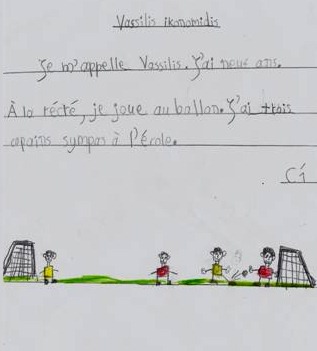 Vassilis ikonomidis
Je m'appelle Vassilis. J'ai neuf ans.
À la récté, je joue au ballon. J'ai trois
copains sympas à l'école.
Cí